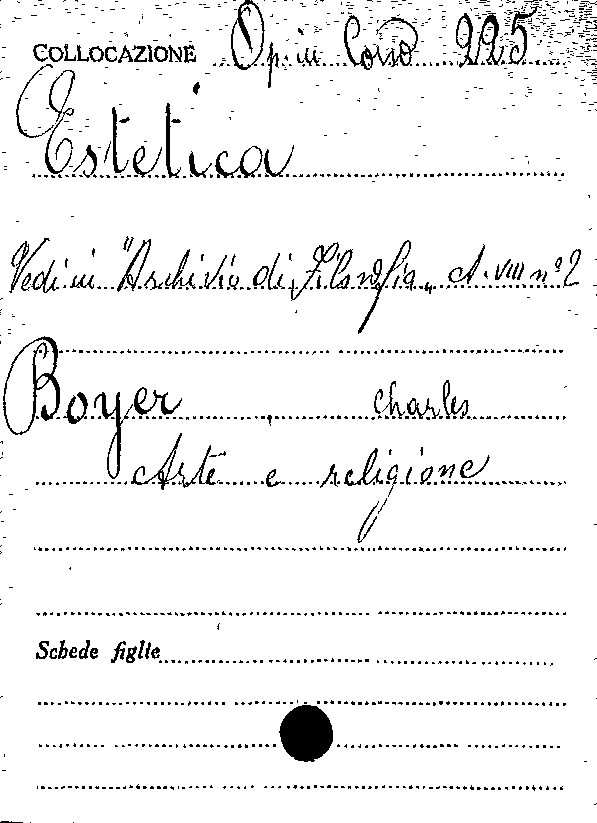 COLLOCAZIONE Op. in Corso 225
Estetica
Vedi in "Archivio di Filosofia„ A. VIII n° 2
Boyer, Charles
Arte e religione
Schede figlie